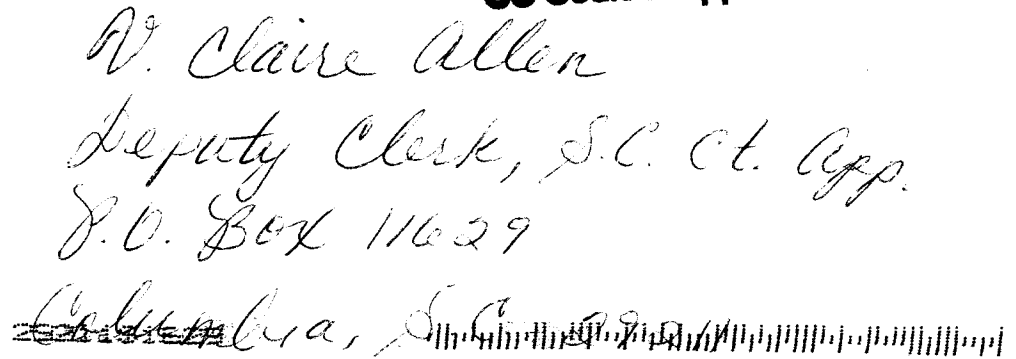 V. Claire Allen
Deputy Clerk, S.C. Ct. App.
P.O. Box 11629
Columbia, S.C.